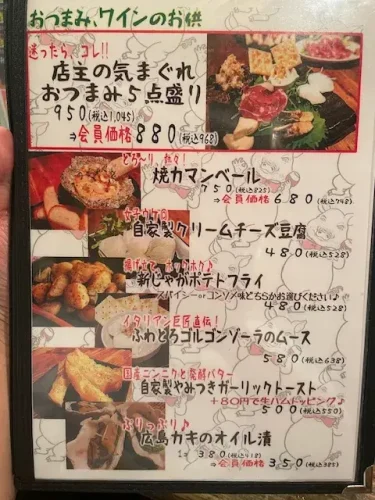 おつまみ、ワインのお供
迷ったら、コレ!!
店主の気まぐれ
おつまみ5点盛り
950(税込1,045)
⇒会員価格880(税込968)
とろ〜り
焼カマンベール
750(税込825)
⇒会員価格680(税込748)
女子ウケ◎
自家製クリームチーズ豆腐
480(税込528)
揚げ立て ホックホク♪
新じゃがポテトフライ
スパイシーorコンソメ味どちらかお選びください♪
480(税込528)
イタリアン巨匠直伝!
ふわとろゴルゴンゾーラのムース
580(税込638)
国産ニンニクと発酵バター
自家製やみつきガーリックトースト
+80円で生ハムトッピング♪
500(税込550)
ぷりっぷり♪
広島カキのオイル漬
1コ 380(税込418)
⇒会員価格350(税込385)